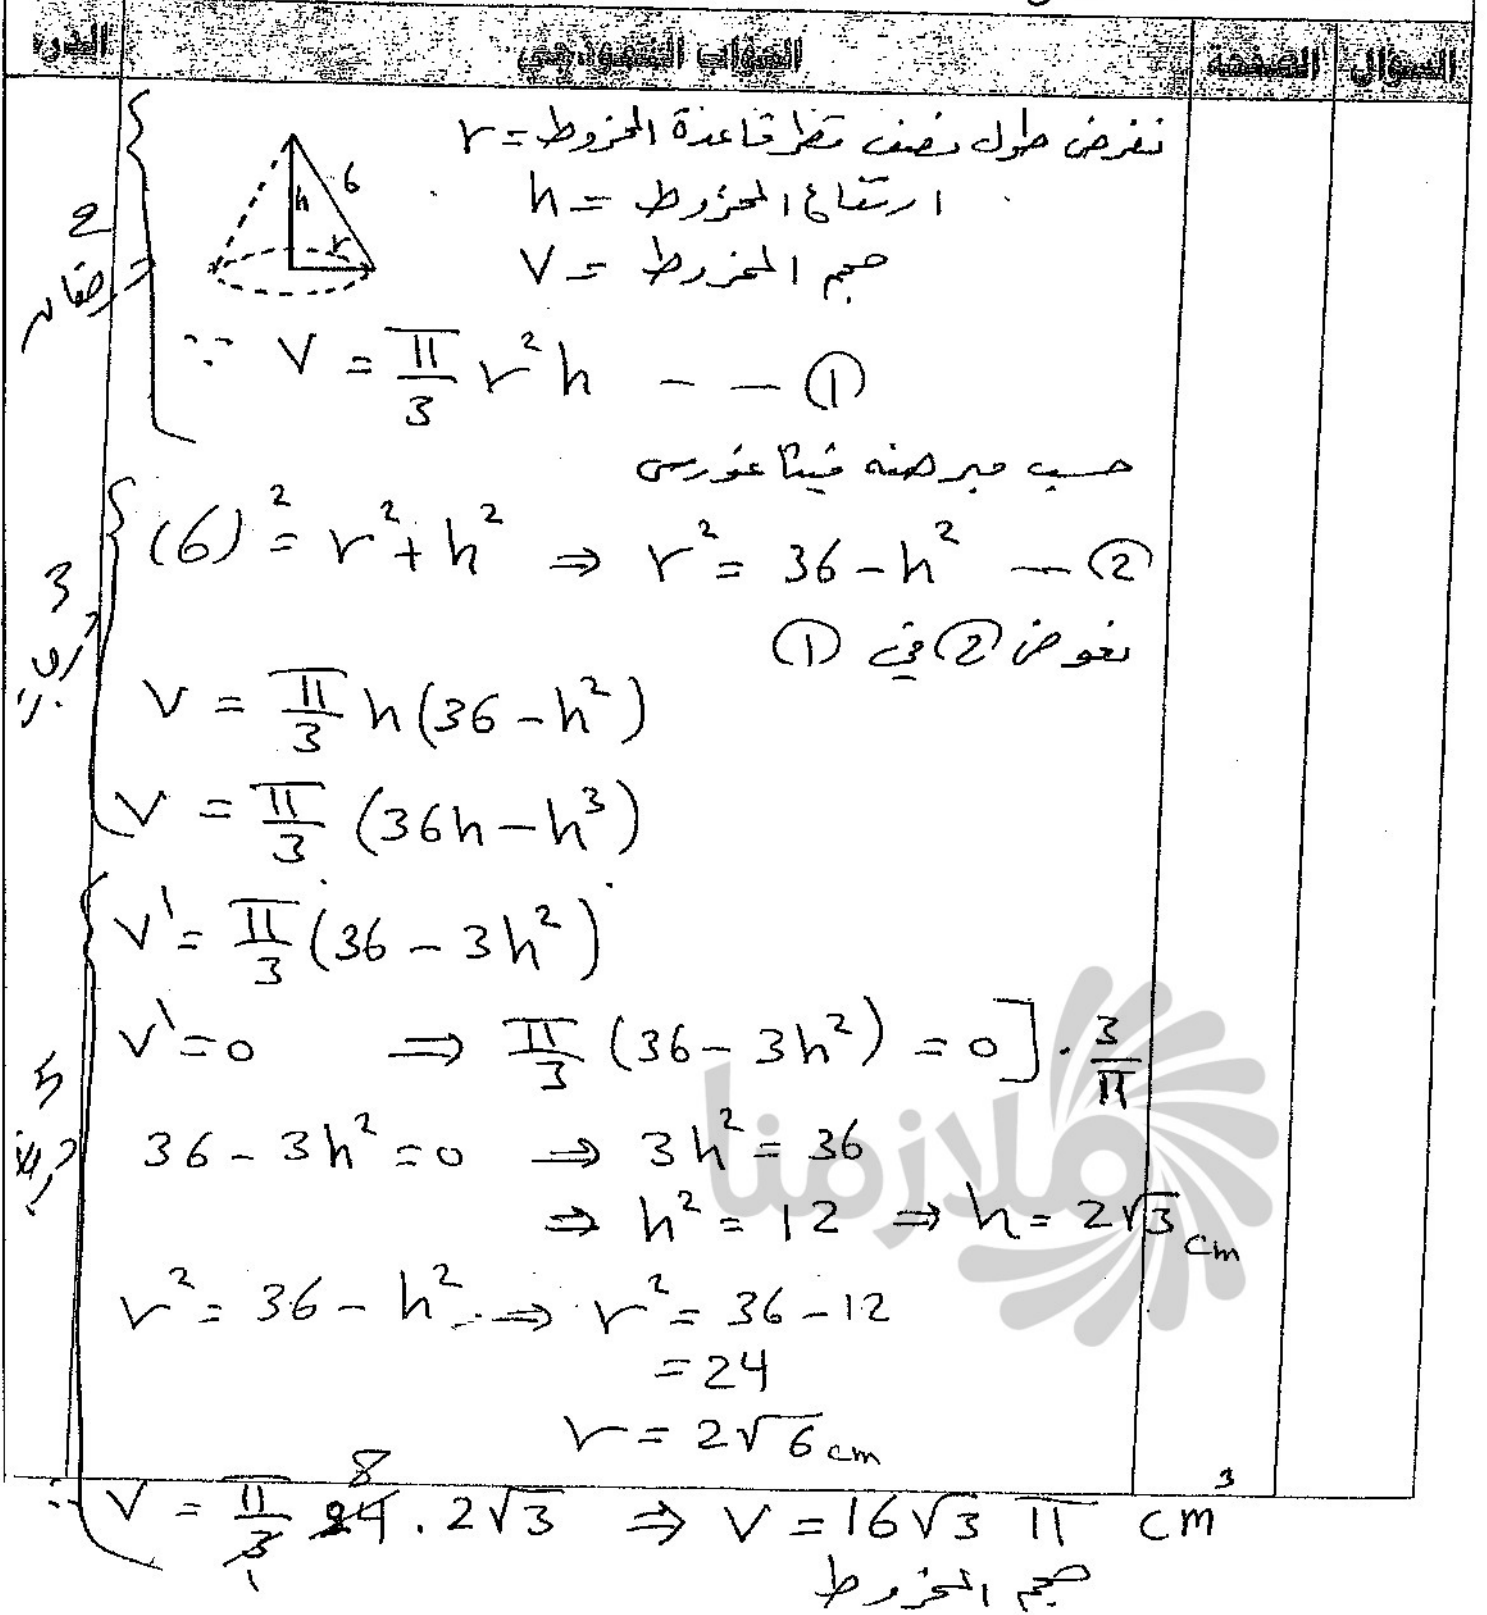 السؤال الصفحة الجواب النموذجي
نفرض طول نصف قطر قاعدة المخروط = r
ارتفاع المخروط = h
حجم المخروط = V
6
h
r
∵ V = π/3 r² h -- ①
2
حسب مبرهنة فيثاغورس
(6)² = r² + h² ⇒ r² = 36 - h² — ②
3
نعوض ② في ①
V = π/3 h(36 - h²)
V = π/3 (36h - h³)
V' = π/3 (36 - 3h²)
V' = 0 ⇒ π/3 (36 - 3h²) = 0] · 3/π
5
36 - 3h² = 0 ⇒ 3h² = 36
⇒ h² = 12 ⇒ h = 2√3 cm
ملازمنا
r² = 36 - h² ⇒ r² = 36 - 12
= 24
r = 2√6 cm
∴ V = π/3 24 . 2√3 ⇒ V = 16√3 π cm³
8
1
حجم المخروط